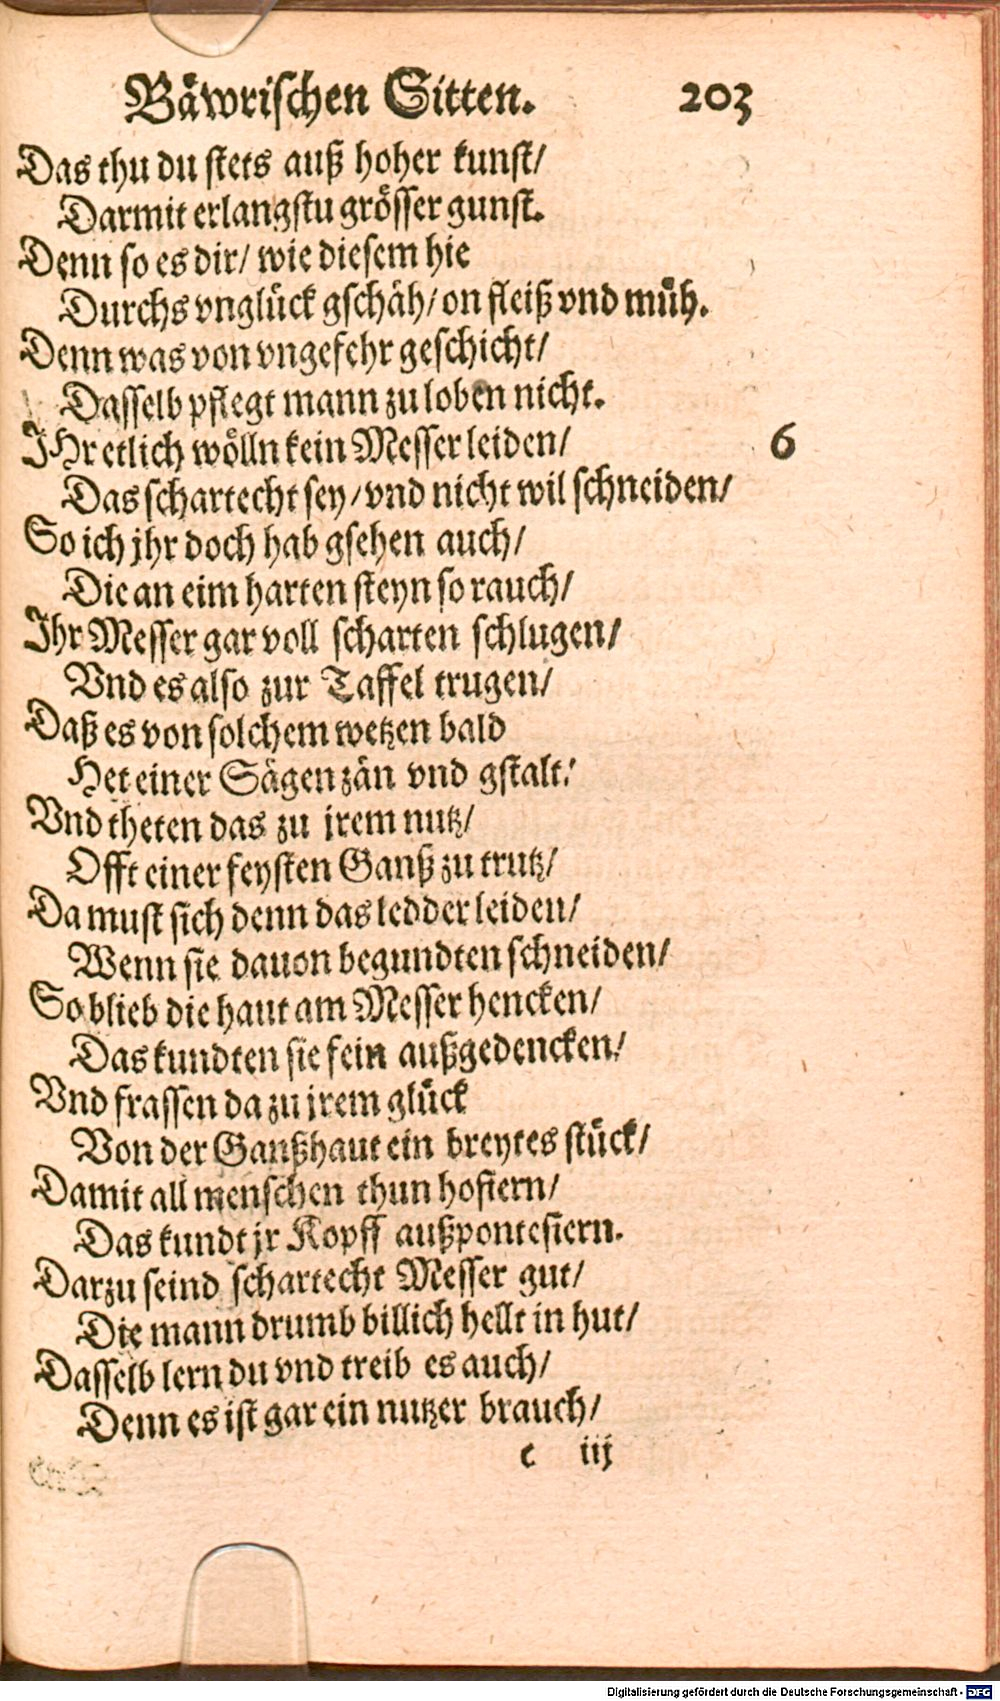 Bäwrischen Sitten. 203
Das thu du stets auß hoher kunst/
Darmit erlangstu grösser gunst.
Denn so es dir/ wie diesem hie
Durchs vnglück gschäh/ on fleiß vnd müh.
Denn was von vngefehr geschicht/
Dasselb pflegt mann zu loben nicht.
IHr etlich wölln kein Messer leiden/ 6
Das schartecht sey/ vnd nicht wil schneiden/
So ich jhr doch hab gsehen auch/
Die an eim harten steyn so rauch/
Ihr Messer gar voll scharten schlugen/
Vnd es also zur Taffel trugen/
Daß es von solchem wetzen bald
Het einer Sägen zän vnd gstalt:
Vnd theten das zu jrem nutz/
Offt einer feysten Ganß zu trutz/
Da must sich denn das ledder leiden/
Wenn sie dauon begundten schneiden/
So blieb die haut am Messer hencken/
Das kundten sie fein außgedencken/
Vnd frassen da zu jrem glück
Von der Ganßhaut ein breytes stück/
Damit all menschen thun hofiern/
Das kundt jr Kopff außpontesiern.
Darzu seind schartecht Messer gut/
Die mann drumb billich hellt in hut/
Dasselb lern du vnd treib es auch/
Denn es ist gar ein nutzer brauch/
c iij
Digitalisierung gefördert durch die Deutsche Forschungsgemeinschaft - DFG